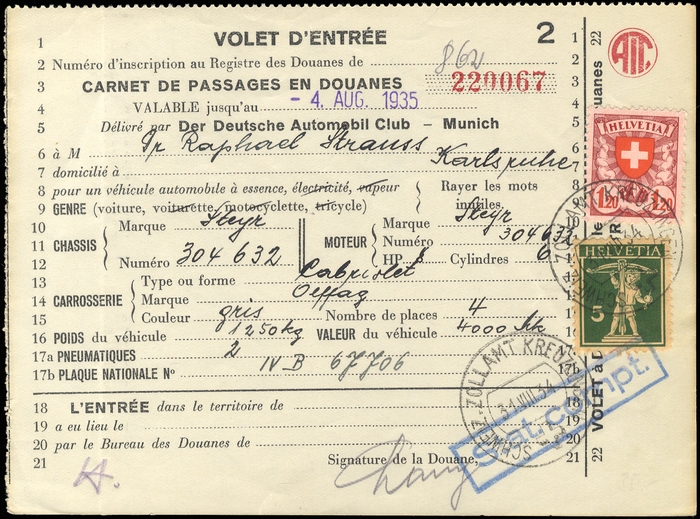 1 VOLET D'ENTRÉE 2 1
2 Numéro d'inscription au Registre des Douanes de 862 2
3 CARNET DE PASSAGES EN DOUANES 220067 3
4 VALABLE jusqu'au - 4. AUG. 1935 4
5 Délivré par Der Deutsche Automobil Club – Munich 5
6 à M Dr Raphael Strauss 6
7 domicilié à Karlsruhe 7
8 pour un véhicule automobile à essence, électricité, vapeur Rayer les mots 8
9 GENRE (voiture, voiturette, motocyclette, tricycle) inutiles. 9
10 Marque Steyr Marque Steyr
11 CHASSIS MOTEUR Numéro 304632
12 Numéro 304 632 HP 8 Cylindres 6
13 Type ou forme Cabriolet
14 CARROSSERIE Marque Oeffag
15 Couleur gris Nombre de places 4
16 POIDS du véhicule 1250 kg VALEUR du véhicule 4000 Mk
17a PNEUMATIQUES 2
17b PLAQUE NATIONALE No IV B 67706 17b
18 L'ENTRÉE dans le territoire de 18
19 a eu lieu le 19
20 par le Bureau des Douanes de 20
21 Signature de la Douane, 21
22
uanes
VOLET à D
22
HELVETIA
1.20 1.20
HELVETIA
5
SCHWEIZ. ZOLLAMT KREUZ
31.VIII.34
Stat. compt